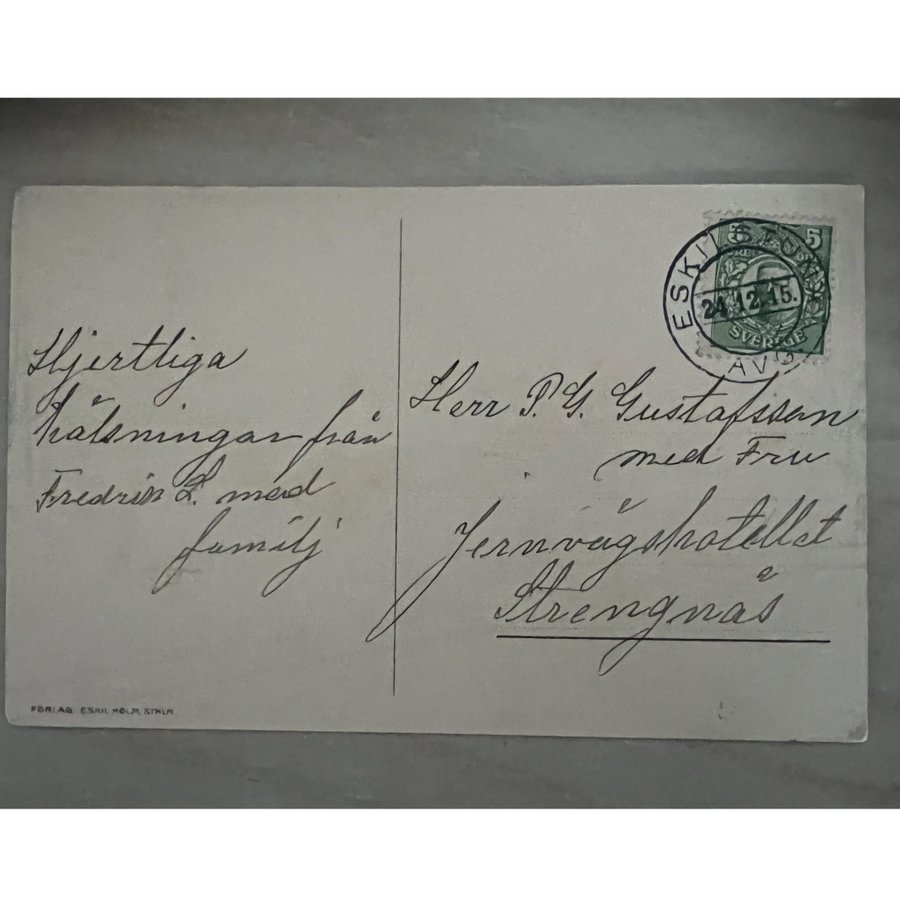 Hjertliga
hälsningar från
Fredrik L. med
familj
FÖRLAG: ESKIL HOLM, STHLM
5 5
ESKILSTUNA
24.12.15.
SVERIGE
AVG.
Herr P. G. Gustafsson
med Fru
Jernvägshotellet
Strengnäs